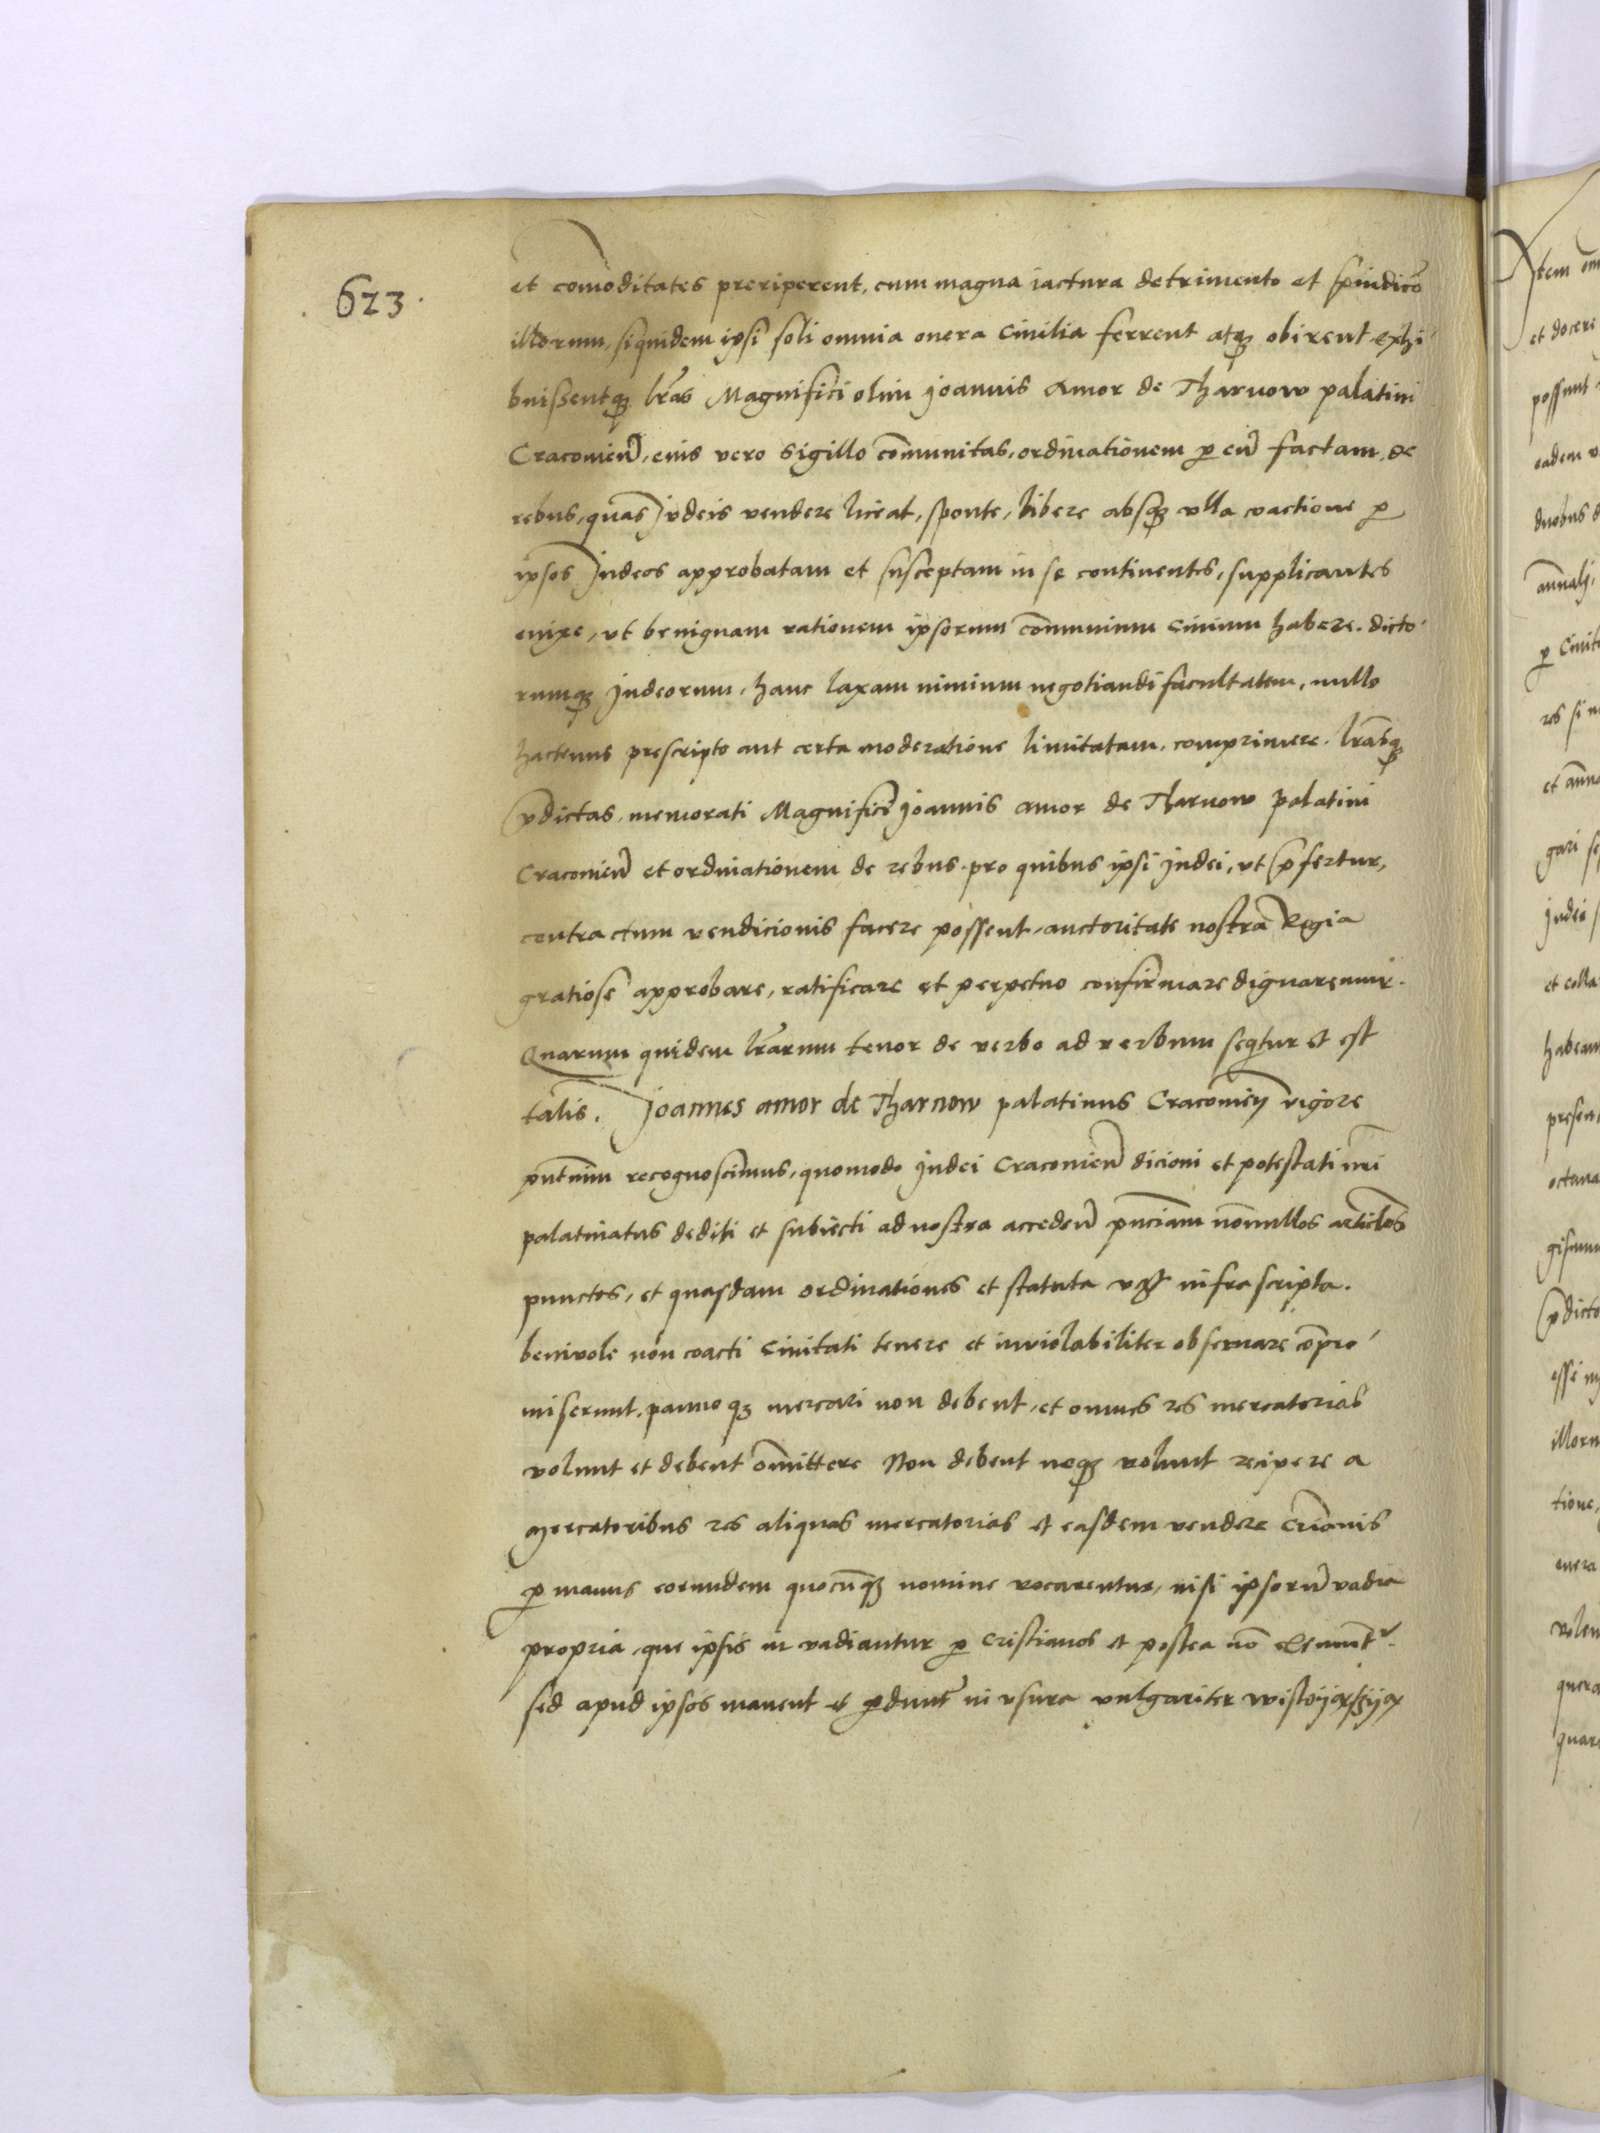 623.
et comoditates preriperent, cum magna iactura detrimento et p̃iudicō
illorum, siquidem ipsi soli omnia onera ciuilia ferrent atq; obirent exhi
buissentq; lr̃as Magnifici olim Joannis Amor de Tharnow palatini
Cracouien̄, eius vero sigillo cōmunitas, ordinationem p eū factam, de
rebus, quas Judeis vendere liceat, sponte, libere absq; vlla coactione p
ipsos Judeos approbatam et susceptam in se continentes, supplicantes
enixe, vt benignam rationem ipsorum cōmunium ciuium habere. dicto
rumq; Judeorum, hanc laxam nimium negotiandi facultatem, nullo
hactenus prescripto aut certa moderatione limitatam, comprimere. lr̃asq;
p̃dictas, memorati Magnifici Joannis amor de Tharnow palatini
Cracouien̄ et ordinationem de rebus, pro quibus ipsi Judei, vt p̃fertur,
contractum vendicionis facere possent, auctoritate nostra Regia
gratiose approbare, ratificare et perpetuo confirmare dignaremur.
Quarum quidem lr̃arum tenor de verbo ad verbum seqtur et est
talis. Joannes amor de Tharnow palatinus Cracouien̄ vigore
pn̄tium recognoscimus, quomodo Judei Cracouien̄ dicioni et potestati nr̃i
palatinatus dediti et subiecti ad nostra acceden̄ pn̄ciam nōnullos articlos
punctos, et quasdam ordinationes et statuta infra scripta.
beniuole non coacti Ciuitati tenere et inuiolabiliter obseruare cōpro
miserunt. panno q; mercari non debent, et omnes res mercatorias
volunt et debent omittere Non debent neq; volunt recipere a
Mercatoribus res aliquas mercatorias et easdem vendere Cr̃ianis
p manus eorundem quocūq; nomine vocarentur, nisi ipsorū vadia
propria, que ipsis in vadiantur p Cristianos et postea nō
sed apud ipsos manent et pdunt̃ in vsura vulgariter